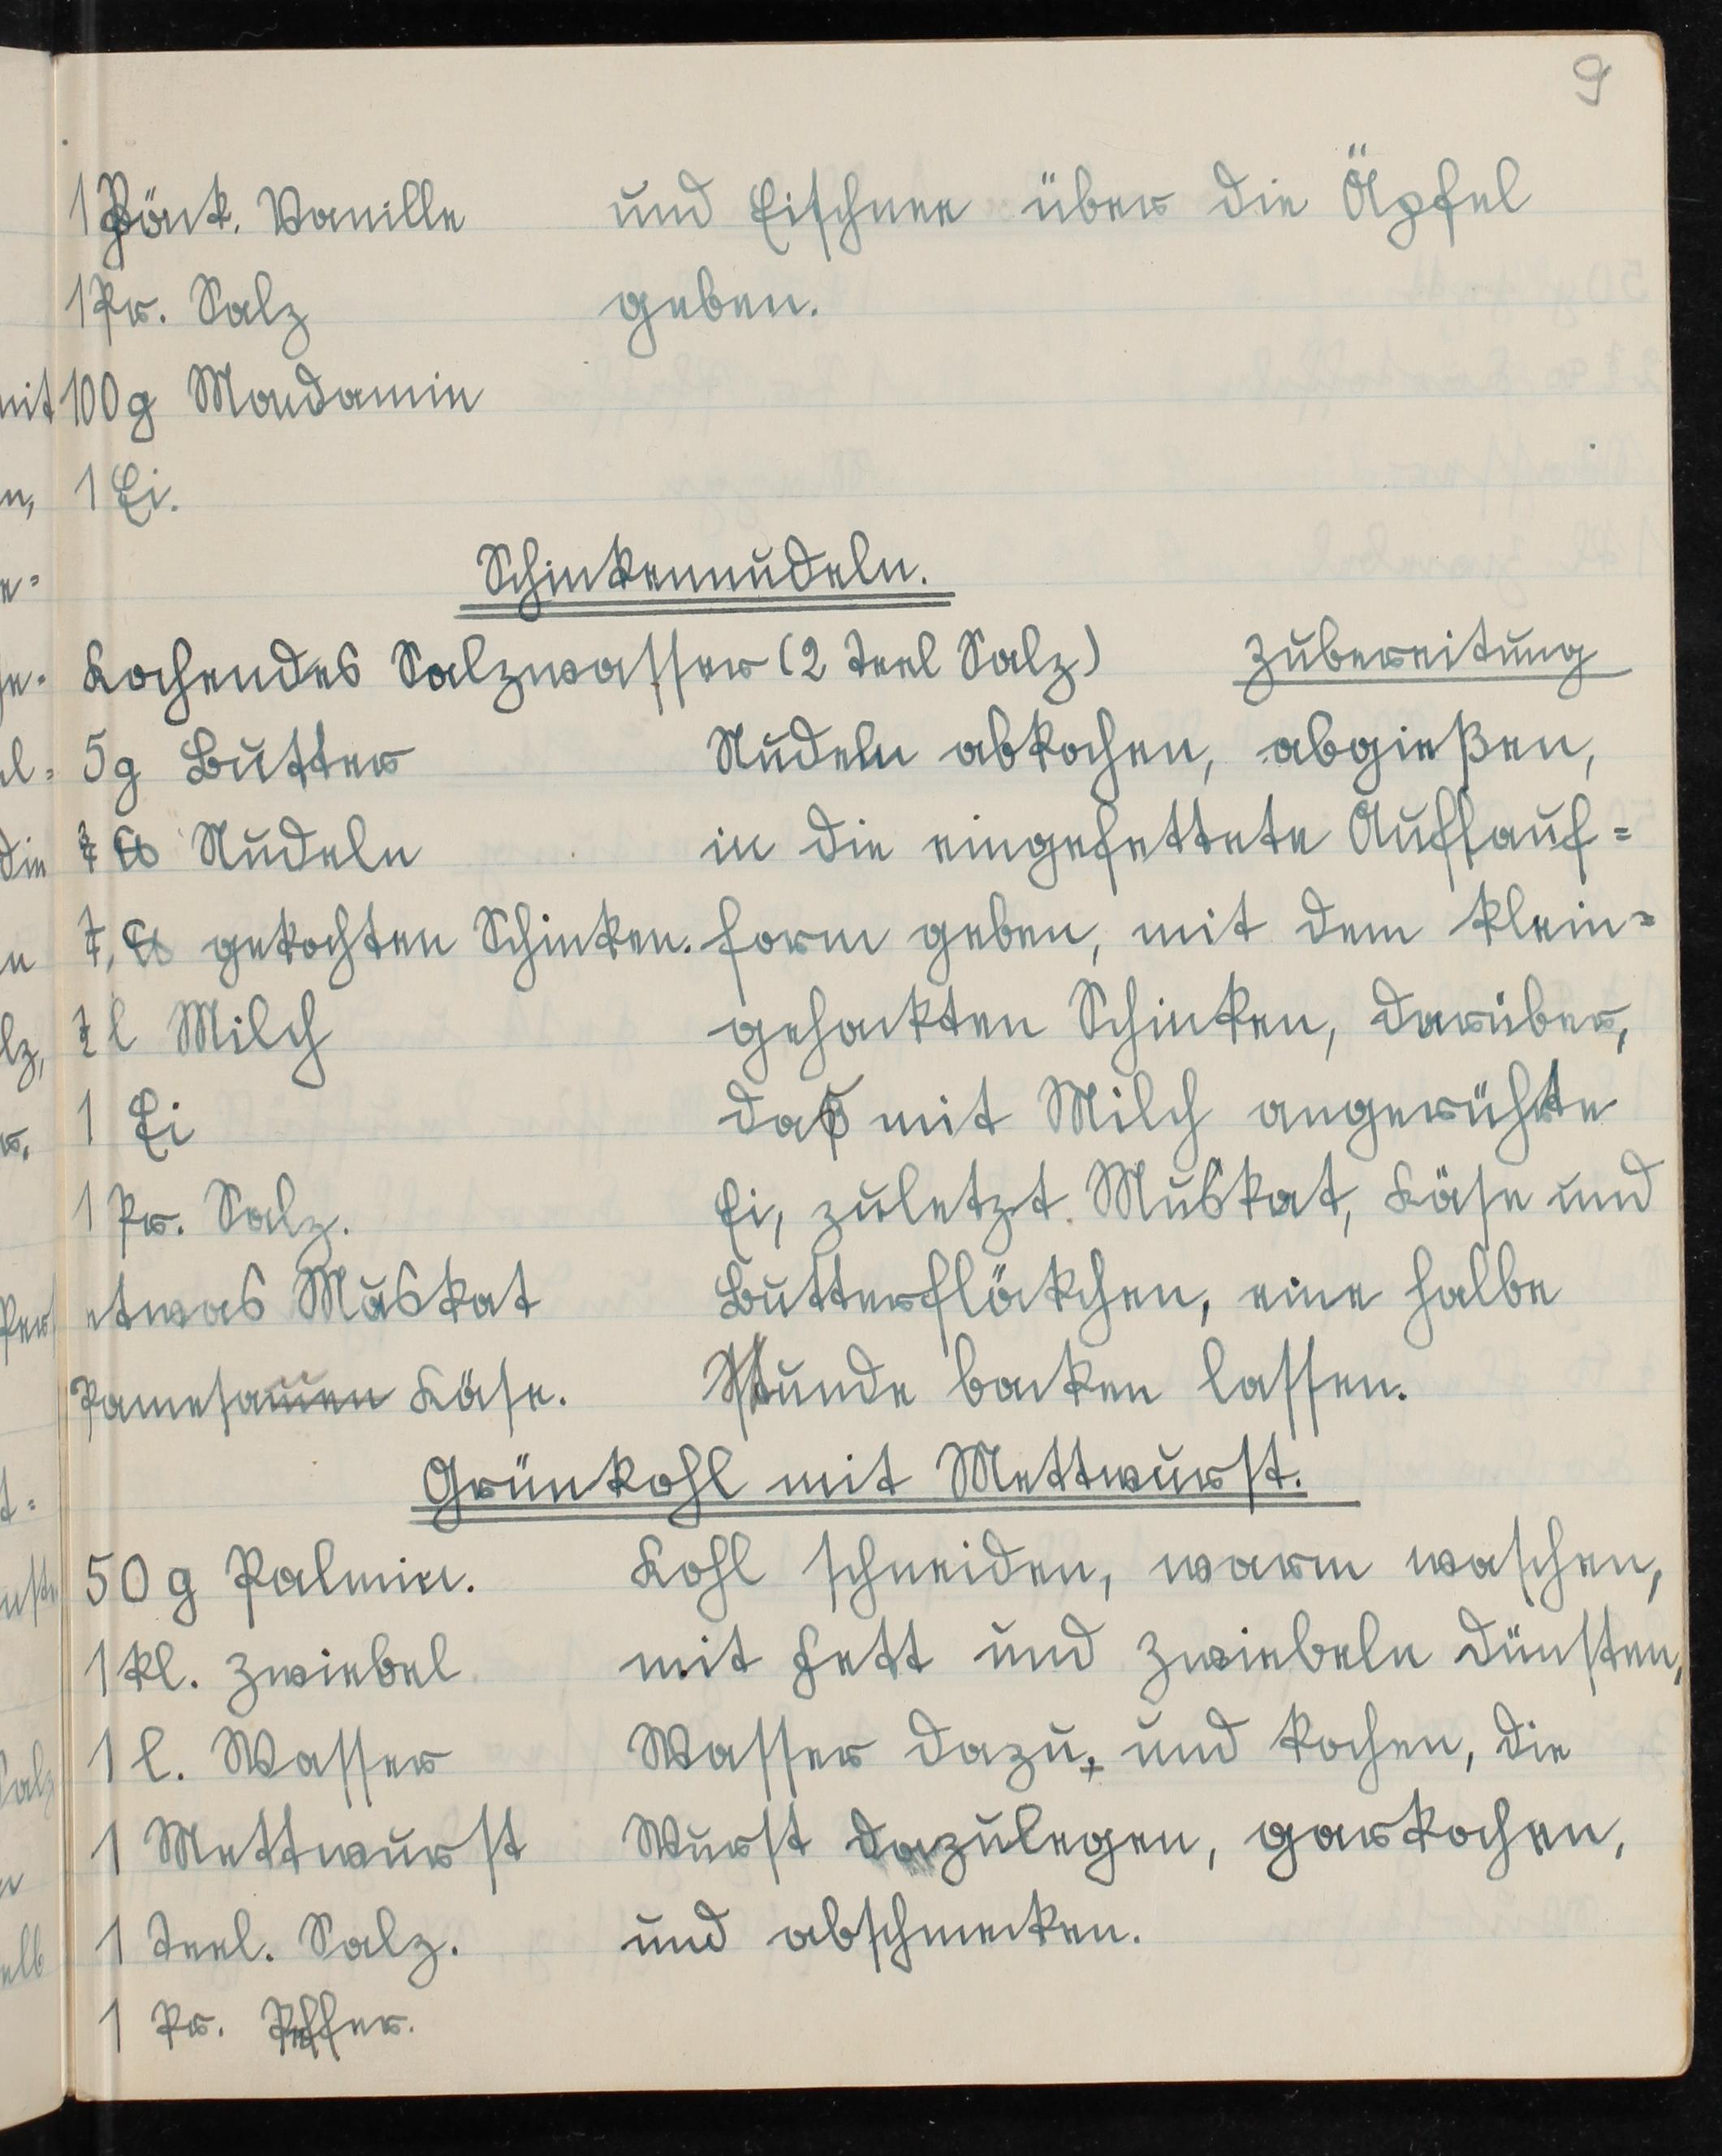 9
1 Päck. Vanille
und Eischnee über die Äpfel
1 Pr. Salz
geben.
100 g Mondamin
1 Ei.
Schinkennudeln.
Kochendes Salzwasser (2 Teel Salz)
Zubereitung
5 g Butter
Nudeln abkochen, abgießen,
℔ Nudeln
in die eingefettete Auflauf=
℔ gekochten Schinken.
form geben, mit dem klein=
l Milch
gehackten Schinken, darüber,
1 Ei
das mit Milch angerührte
1 Pr. Salz.
Ei, zuletzt Muskat, Käse und
etwas Muskat
Butterflöckchen, eine halbe
Käse.
Stunde backen lassen.
Grünkohl mit Mettwurst.
50 g Palmin.
Kohl schneiden, warm waschen,
1 kl. Zwiebel
mit Fett und Zwiebeln dünsten,
1 l. Wasser
Wasser dazu, und kochen, die
1 Mettwurst
Wurst dazulegen, garkochen,
1 Teel. Salz.
und abschmecken.
1 Pr. Peffer.